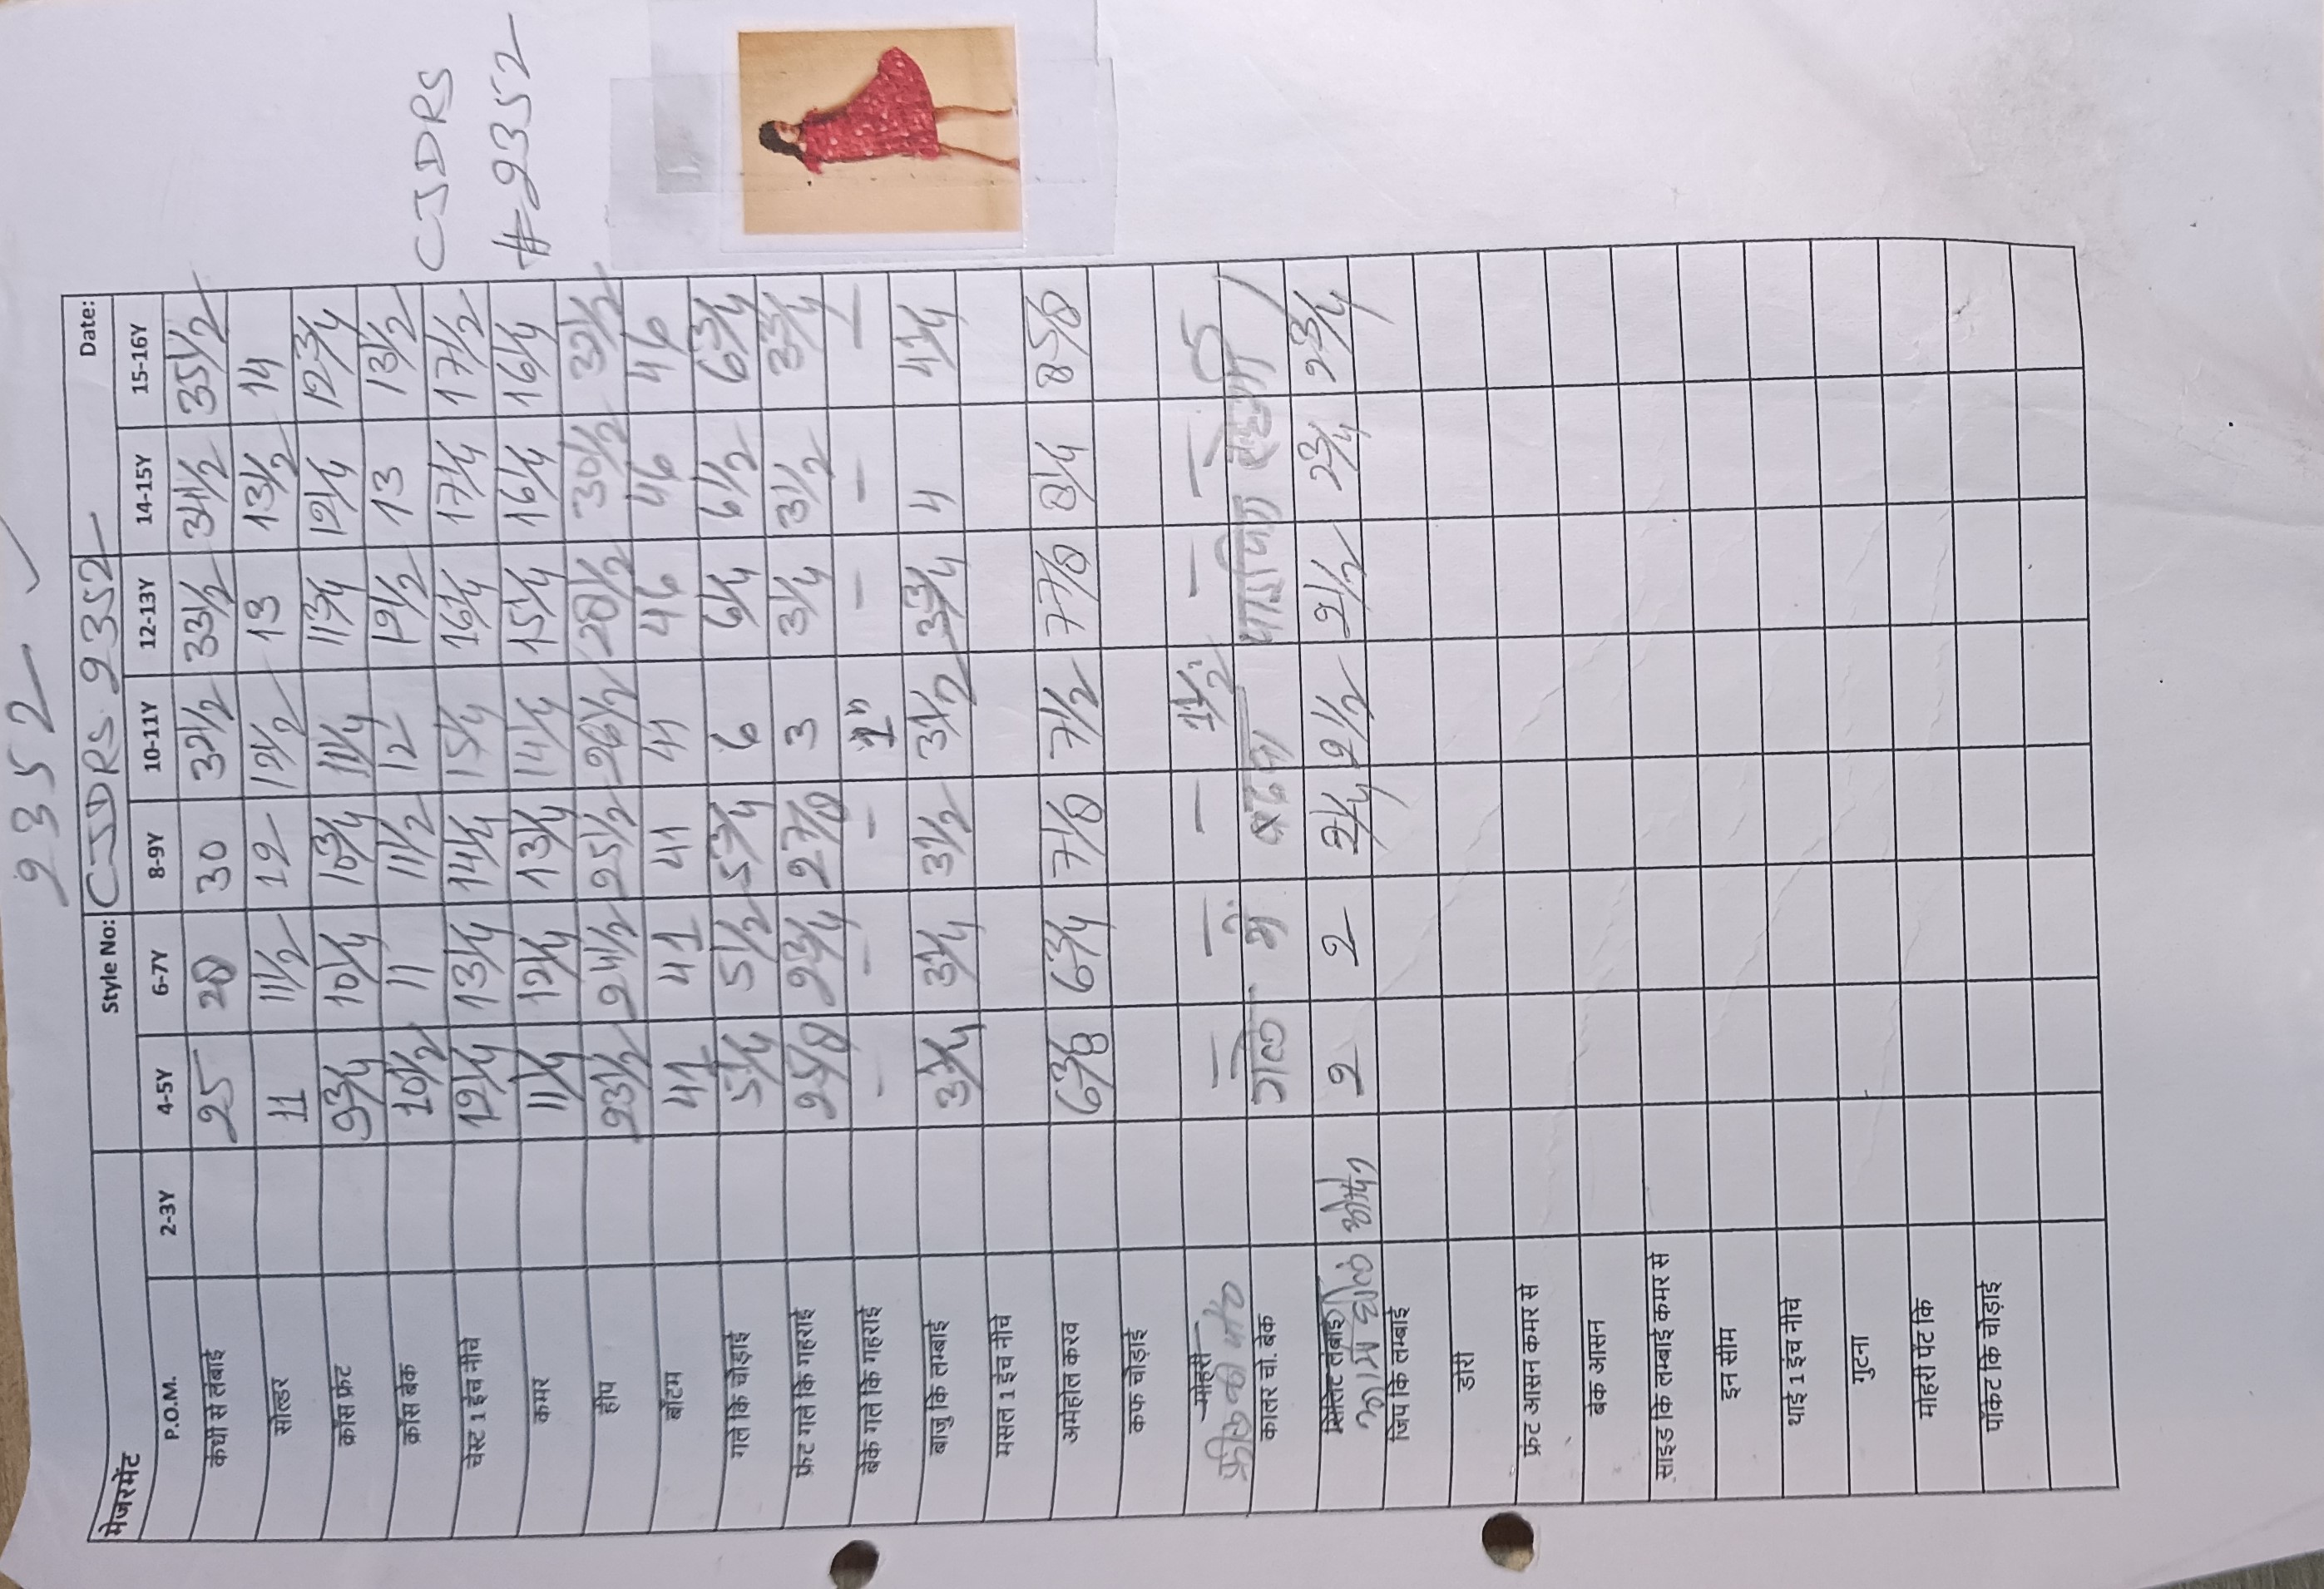 9352
CJDRS
#9352
मेजरमेंट Style No: CJDRS 9352 Date:
P.O.M. 2-3Y 4-5Y 6-7Y 8-9Y 10-11Y 12-13Y 14-15Y 15-16Y
कंधी से लंबाई 25 28 30 32 1/2 33 1/2 34 1/2 35 1/2
सोल्डर 11 11 1/2 12 12 1/2 13 13 1/2 14
क्रॉस फ्रंट 9 3/4 10 1/4 10 3/4 11 1/4 11 3/4 12 1/4 12 3/4
क्रॉस बेक 10 1/2 11 11 1/2 12 12 1/2 13 13 1/2
चेस्ट 1 ईंच नीचे 12 1/4 13 1/4 14 1/4 15 1/4 16 1/4 17 1/4 17 1/2
कमर 11 1/4 12 1/4 13 1/4 14 1/4 15 1/4 16 1/4 16 1/4
हीप 23 1/2 24 1/2 25 1/2 26 1/2 28 1/2 30 1/2 31/2
बॉटम 41 41 41 41 46 46 46
गले कि चौड़ाई 5 1/4 5 1/2 5 3/4 6 6 1/4 6 1/2 6 3/4
फ्रंट गले कि गहराई 2 5/8 2 3/4 2 7/8 3 3 1/4 3 1/2 3 3/4
बेक गले कि गहराई - - - 1" - - -
बाजु कि लम्बाई 3 1/4 3 1/4 3 1/2 3 1/2 3 3/4 4 4 1/4
मसल 1 इंच नीचे
अर्महोल करव 6 3/8 6 3/4 7 1/8 7 1/2 7 7/8 8 1/4 8 5/8
कफ चौड़ाई
मोहरी - - - 1 1/2" - -
कालर चो. बेक गले में
सिलिट लंबाई 2 2 2 1/4 2 1/2 2 1/2 2 3/4 2 3/4
जिप कि लम्बाई
डोरी
फ्रंट आसन कमर से
बेक आसन
साइड कि लम्बाई कमर से
इन सीम
थाई 1 इंच नीचे
गुटना
मोहरी पेंट कि
पॉकेट कि चौड़ाई